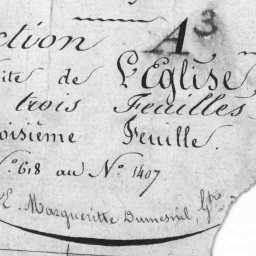 ction A3
ite de L'Eglise
trois Feuilles
oisième Feuille.
N.o 618 au N.o 1407
E. Margueritte Dumesnil, Gre